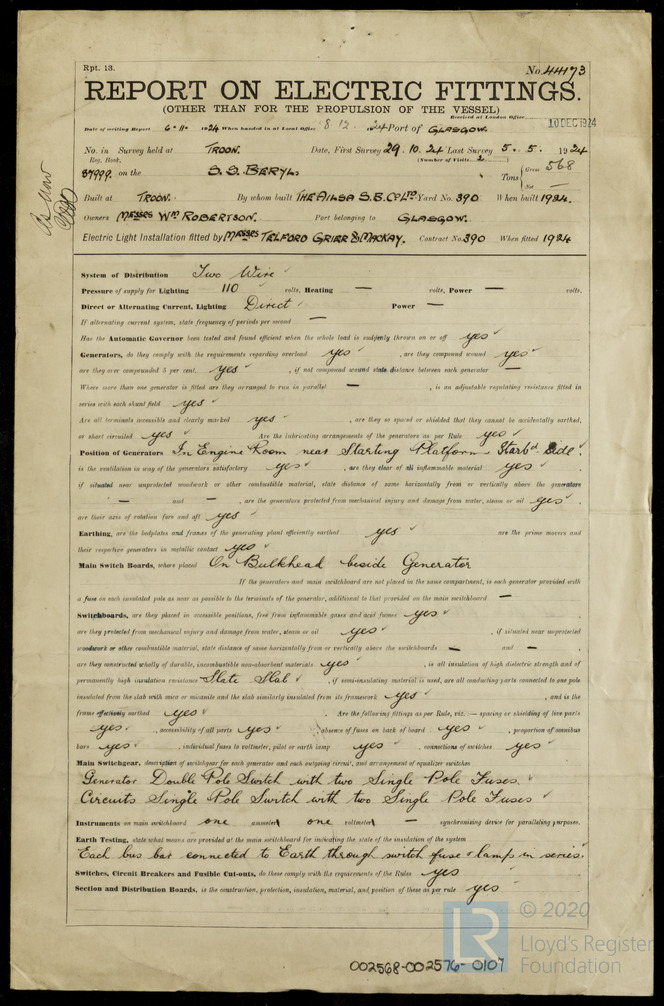 Rpt. 13.
No. 44173
REPORT ON ELECTRIC FITTINGS.
(OTHER THAN FOR THE PROPULSION OF THE VESSEL)
Received at London Office
Date of writing Report 6-11- 1924 When handed in at Local Office 8.12. 1924 Port of GLASGOW. 10 DEC 1924
No. in Survey held at TROON. Date, First Survey 29.10.24 Last Survey 5.5. 1924
Reg. Book. (Number of Visits 2)
37999. on the S.S. BERYL Tons { Gross 568
Net —
Built at TROON. By whom built THE AILSA S.B. Co LTD Yard No. 390 When built 1924.
Owners MESSRS WM ROBERTSON. Port belonging to GLASGOW.
Electric Light Installation fitted by MESSRS TELFORD GRIER & MACKAY. Contract No. 390 When fitted 1924
System of Distribution Two Wire
Pressure of supply for Lighting 110 volts, Heating — volts, Power — volts.
Direct or Alternating Current, Lighting Direct Power —
If alternating current system, state frequency of periods per second —
Has the Automatic Governor been tested and found efficient when the whole load is suddenly thrown on or off yes
Generators, do they comply with the requirements regarding overload yes , are they compound wound yes
are they over compounded 5 per cent. yes , if not compound wound state distance between each generator —
Where more than one generator is fitted are they arranged to run in parallel — , is an adjustable regulating resistance fitted in
series with each shunt field yes
Are all terminals accessible and clearly marked yes , are they so spaced or shielded that they cannot be accidentally earthed,
or short circuited yes Are the lubricating arrangements of the generators as per Rule yes
Position of Generators In Engine Room near Starting Platform - Starbd Side.
is the ventilation in way of the generators satisfactory yes , are they clear of all inflammable material yes
if situated near unprotected woodwork or other combustible material, state distance of same horizontally from or vertically above the generators
— and — , are the generators protected from mechanical injury and damage from water, steam or oil yes
are their axis of rotation fore and aft yes
Earthing, are the bedplates and frames of the generating plant efficiently earthed yes are the prime movers and
their respective generators in metallic contact yes
Main Switch Boards, where placed On Bulkhead beside Generator
If the generators and main switchboard are not placed in the same compartment, is each generator provided with
a fuse on each insulated pole as near as possible to the terminals of the generator, additional to that provided on the main switchboard —
Switchboards, are they placed in accessible positions, free from inflammable gases and acid fumes yes
are they protected from mechanical injury and damage from water, steam or oil yes , if situated near unprotected
woodwork or other combustible material, state distance of same horizontally from or vertically above the switchboards — and —
are they constructed wholly of durable, incombustible non-absorbent materials yes , is all insulation of high dielectric strength and of
permanently high insulation resistance Slate Slab , if semi-insulating material is used, are all conducting parts connected to one pole
insulated from the slab with mica or micanite and the slab similarly insulated from its framework yes , and is the
frame effectively earthed yes Are the following fittings as per Rule, viz. :— spacing or shielding of live parts
yes , accessibility of all parts yes , absence of fuses on back of board yes , proportion of omnibus
bars yes , individual fuses to voltmeter, pilot or earth lamp yes , connections of switches yes
Main Switchgear, description of switchgear for each generator and each outgoing circuit, and arrangement of equalizer switches
Generator Double Pole Switch with two Single Pole Fuses.
Circuits Single Pole Switch with two Single Pole Fuses
Instruments on main switchboard one ammeter one voltmeter — synchronising device for paralleling purposes.
Earth Testing, state what means are provided at the main switchboard for indicating the state of the insulation of the system
Each bus bar connected to Earth through switch fuse & lamp in series.
Switches, Circuit Breakers and Fusible Cut-outs, do these comply with the requirements of the Rules yes
Section and Distribution Boards, is the construction, protection, insulation, material, and position of these as per rule yes
© 2020
LR
Lloyd's Register
Foundation
002568-002576-0107